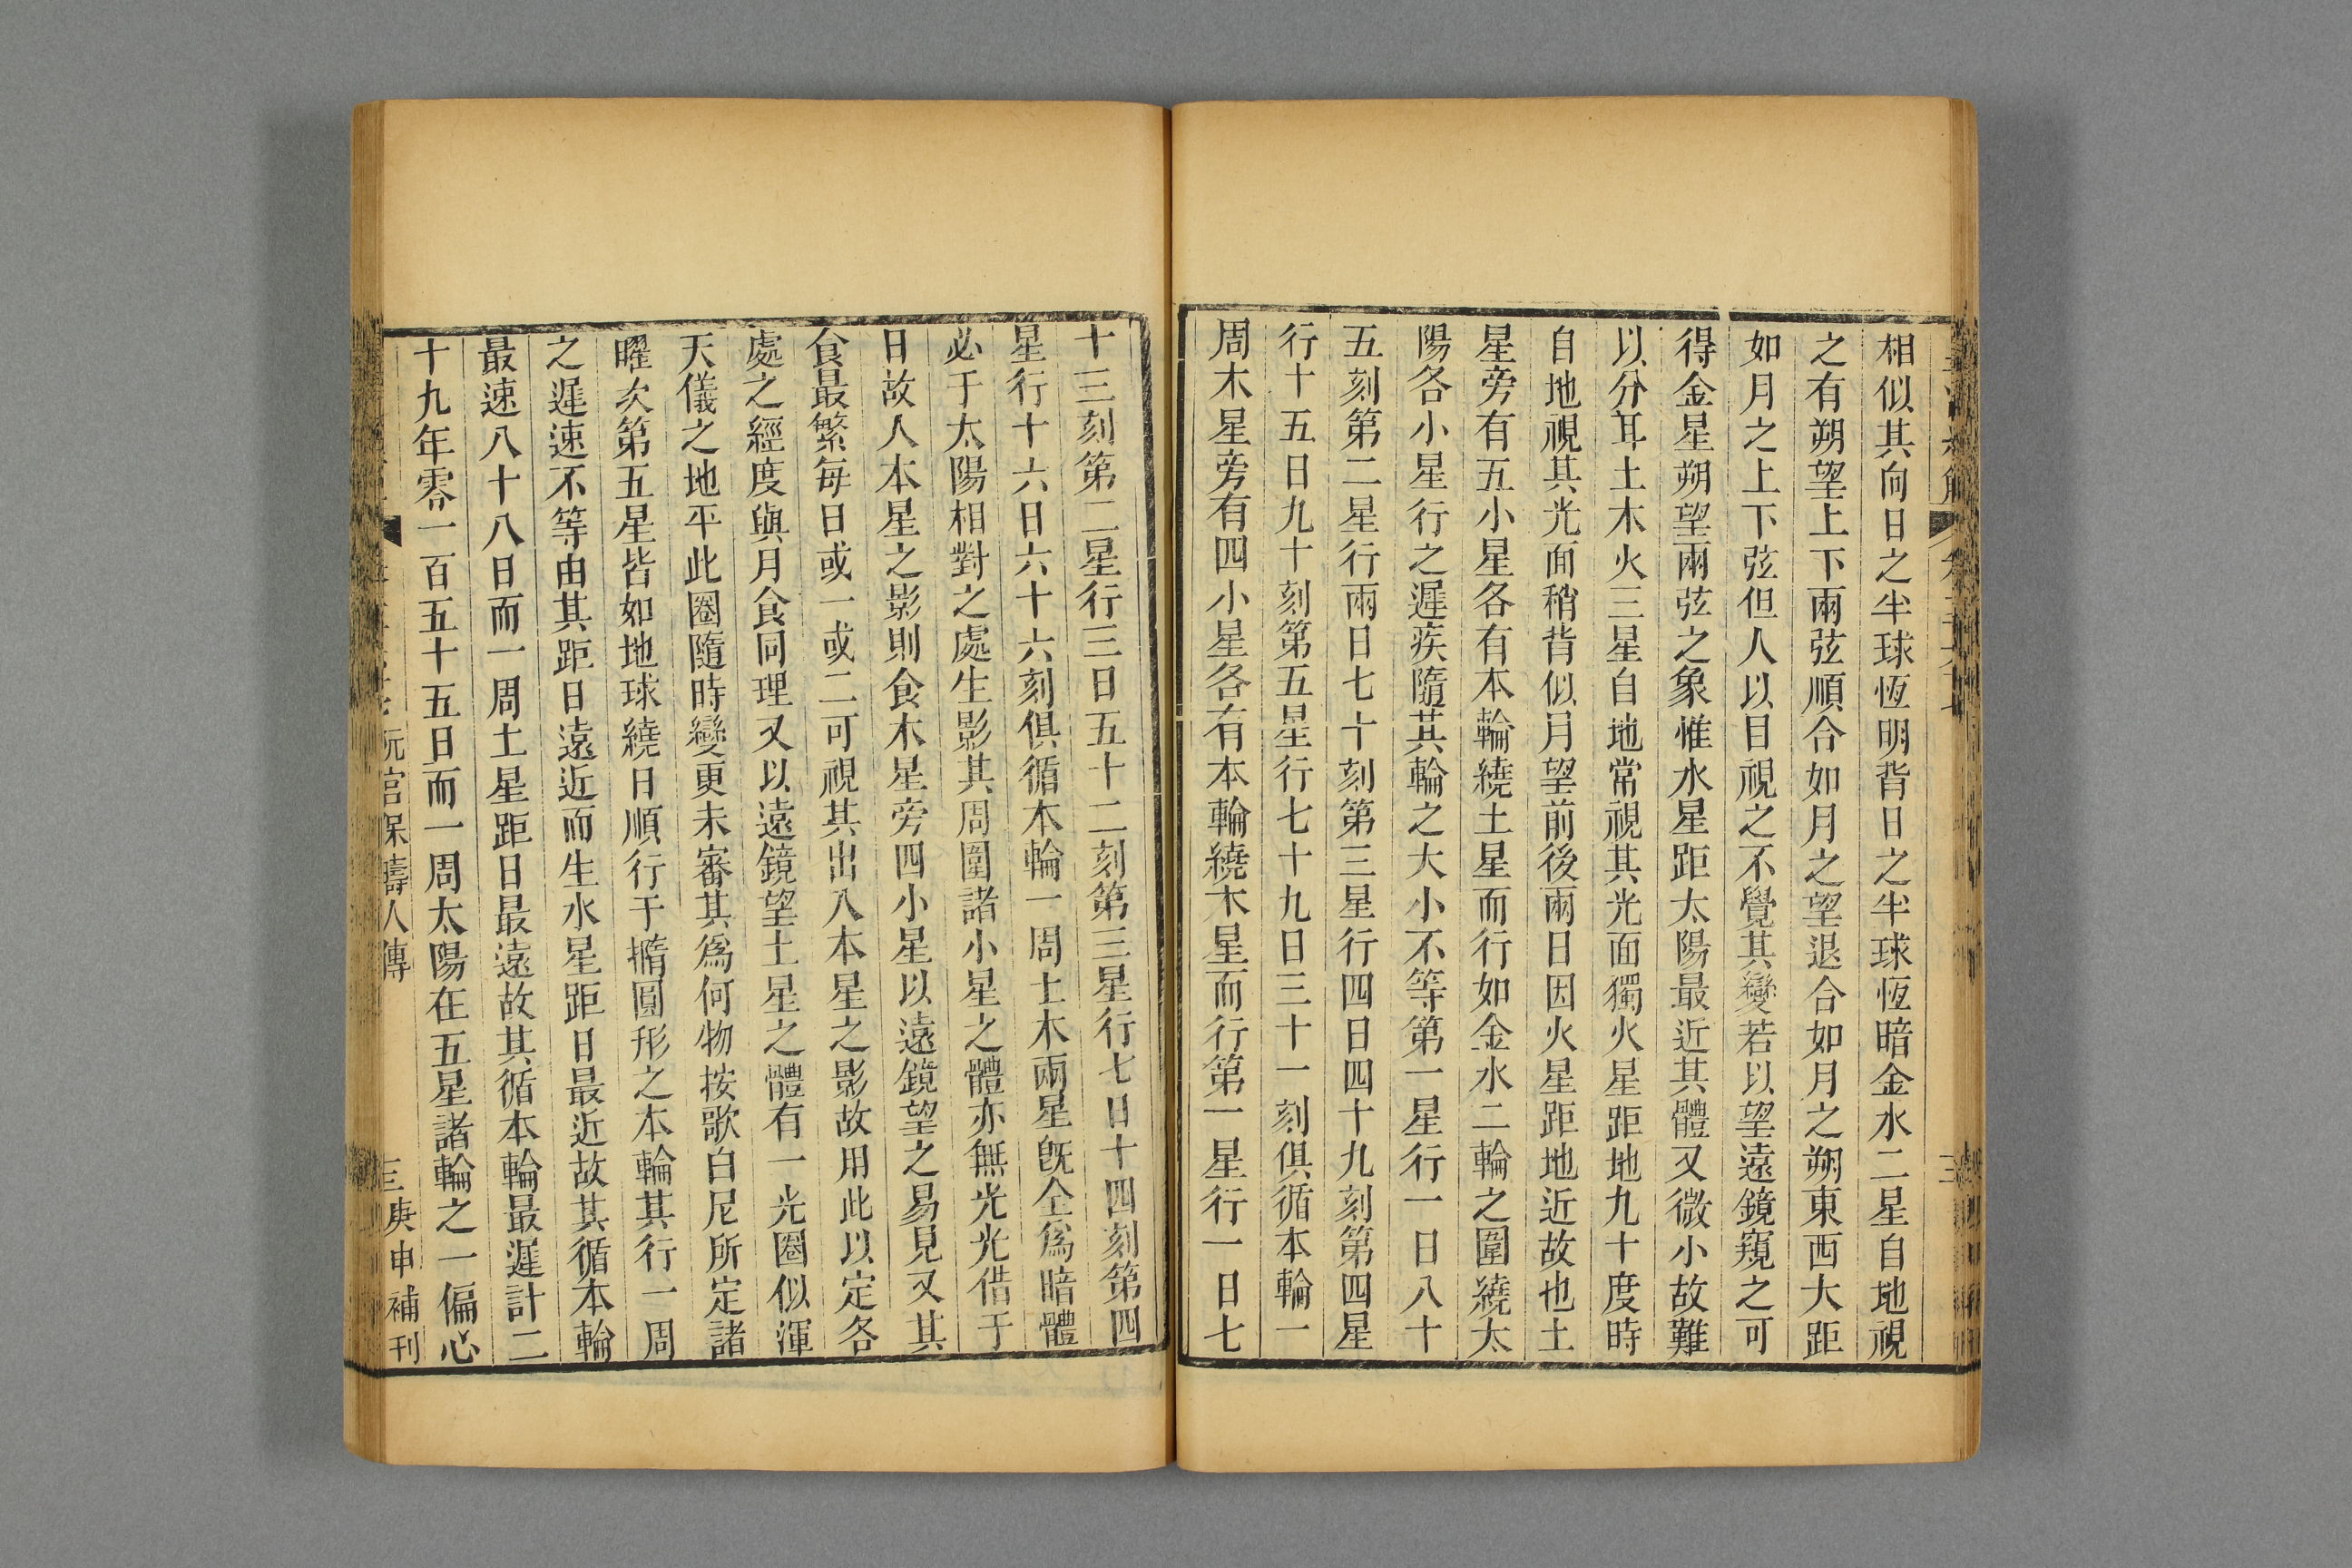 相似其向日之半球恆明背日之半球恆暗金水二星自地視
之有朔望上下兩弦順合如月之望退合如月之朔東西大距
如月之上下弦但人以目視之不覺其變若以望遠鏡窺之可
得金星朔望兩弦之象惟水星距太陽最近其體又微小故難
以分耳土木火三星自地常視其光面獨火星距地九十度時
自地視其光面稍背似月望前後兩日因火星距地近故也土
星旁有五小星各有本輪繞土星而行如金水二輪之圍繞太
陽各小星行之遲疾隨其輪之大小不等第一星行一日八十
五刻第二星行兩日七十刻第三星行四日四十九刻第四星
行十五日九十刻第五星行七十九日三十一刻俱循本輪一
周木星旁有四小星各有本輪繞木星而行第一星行一日七
十三刻第二星行三日五十二刻第三星行七日十四刻第四
星行十六日六十六刻俱循本輪一周土木兩星旣全爲暗體
必于太陽相對之處生影其周圍諸小星之體亦無光光借于
日故人本星之影則食木星旁四小星以遠鏡望之易見又其
食最繁每日或一或二可視其出入本星之影故用此以定各
處之經度與月食同理又以遠鏡望土星之體有一光圈似渾
天儀之地平此圈隨時變更未審其爲何物按歌白尼所定諸
曜次第五星皆如地球繞日順行于撱圓形之本輪其行一周
之遲速不等由其距日遠近而生水星距日最近故其循本輪
最速八十八日而一周土星距日最遠故其循本輪最遲計二
十九年零一百五十五日而一周太陽在五星諸輪之一偏心
阮宮保疇人傳
三
庚申補刊